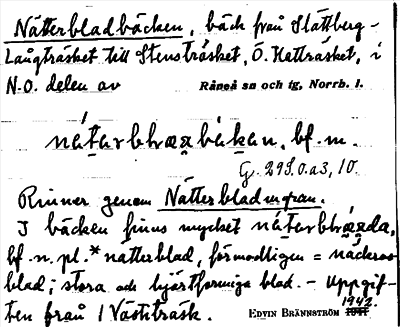 Nätterbladbäcken, bäck från Slättberg-
Långträsket till Stensträsket, Ö. Hatträsket, i
N.O. delen av Råneå sn och tg, Norrb. l.
bf. m.
G. 29
Rinner genom Nätterbladmyran.
I bäcken finns mycket
bf. n. pl. * nätterblad, förmodligen = näckros-
blad; stora och hjärtformiga blad. - Uppgif-
ten från 1 Västiträsk. EDVIN BRÄNNSTRÖM 1942.